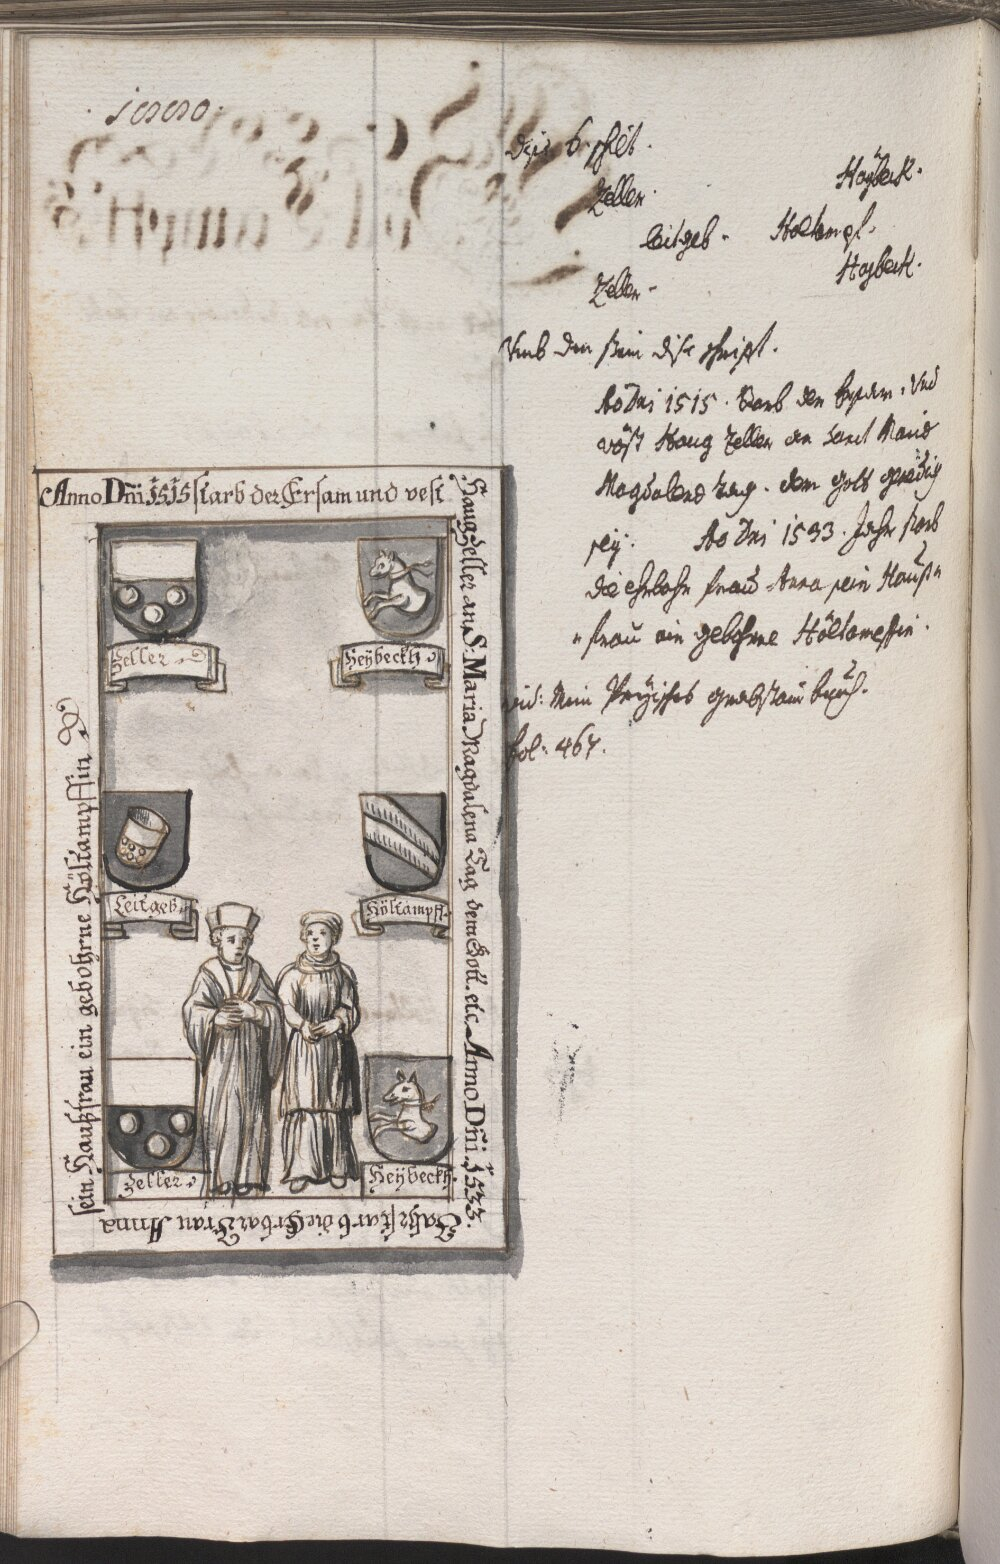 Dise 6 schilt.
Zeller.
Haÿbeck.
leitgeb.
Höltampf.
Zeller.
Haybeck.
Vmb den stein dise schrifft.
Ao Dni 1515. starb der Ersam. Vnd
vöst Haug Zeller an Sanct Maria
Magdalena tag. dem gott genedig
seÿ. Ao Dni 1533. Jahr starb
die ehrbahr frau Anna sein Hauß
frau ein gebohrne Höltampffin.
vid: Mein grabstain buech.
fol. 467.
Anno Dñi 1515 starb der Ersam und vest
Haug Zeller an S: Maria Magdalena Tag dem Gott. etc. Anno Dñi. 1533.
Jahr starb die Erbar Frau Anna
sein Haußfrau ein gebohrne Höltampffin
Zeller
Heÿbeckh
Leitgeb
Höltampff
Zeller
Heÿbeckh